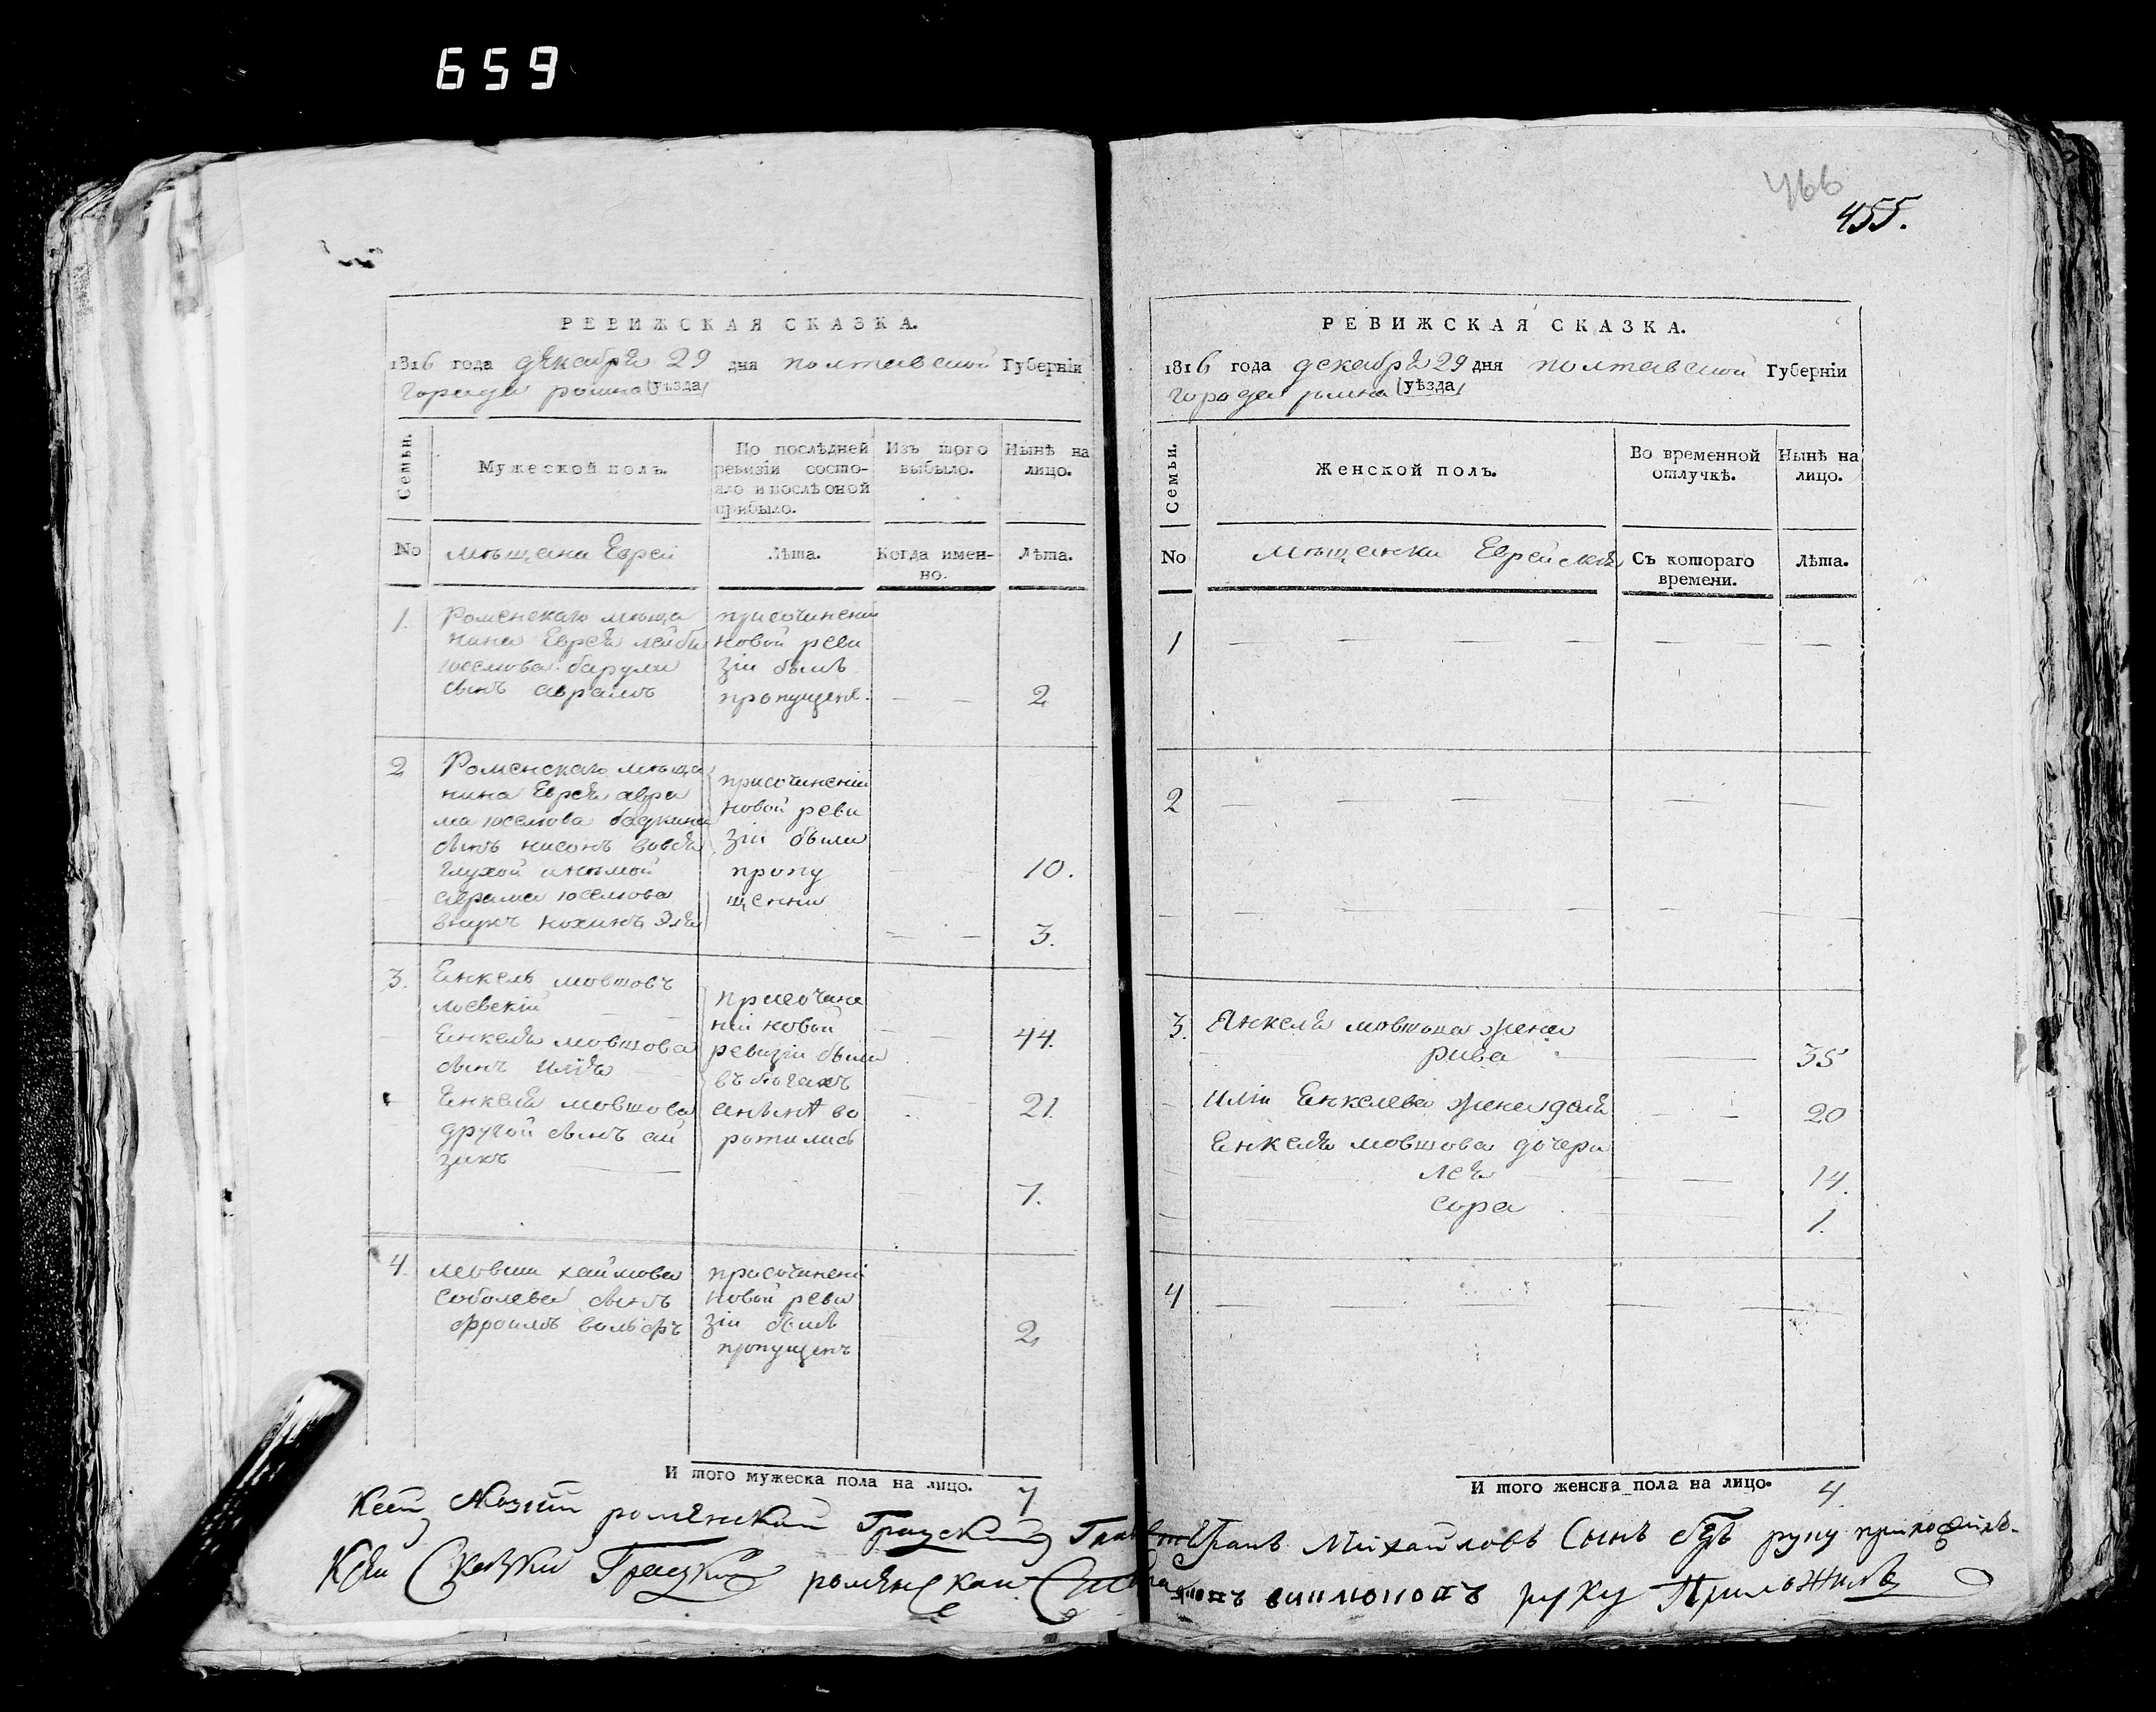 659
466
455.
РЕВИЖСКАЯ СКАЗКА.
1816 года декабря 29 дня полтавской Губерніи
города ромна (уѣзда)
Семьи.
Мужеской полъ.
По послѣдней ревизіи состо-
яло и послѣ оной
прибыло.
Изъ того
выбыло.
Нынѣ на
лицо.
No
мѣщане Евреи
Лѣта.
Когда имен-
но.
Лѣта.
1.
Роменскаго мѣща
нина Еврея лейбы
юселюва барули
сынъ аврамъ
присочинении
новой реви
зіи былъ
пропущенъ.
2
2
Роменскаго мѣща
нина Еврея авра
ма юселюва
сынъ нисонъ
глухой инѣмой
аврама юселюва
внукъ нохимъ Эля
присочиненіи
новой реви
зіи были
пропу
щенни
10.
3.
3.
Енкель мовшовъ
лоевскій
Енкеля мовшова
сынъ илія
Енкеля мовшова
другой сынъ ай
зикъ
присочине
ніи новой
ревизіи были
въ бѣгахъ
во
ротились
44.
21.
7.
4.
мовши хаймова
соболева сынъ
фроимъ вольфъ
присочинені
новой реви
зіи былъ
пропущенъ
2
И того мужеска пола на лицо. 7
РЕВИЖСКАЯ СКАЗКА.
1816 года декабря 29 дня полтавской Губерніи
города ромна (уѣзда)
Семьи.
Женской полъ.
Во временной
отлучкѣ.
Нынѣ на
лицо.
No
мѣщанки Еврейскія
Съ котораго
времени.
Лѣта.
1
2
3.
Янкеля мовшова жена
рива
35
иліи Енкелева жена
20
Енкеля мовшова дочери
лея
14.
сора
1.
4
И того женска пола на лицо. 4.
роменскай Градский Михайловъ Сынъ руку
Сказки роменскаи руку Приложилъ